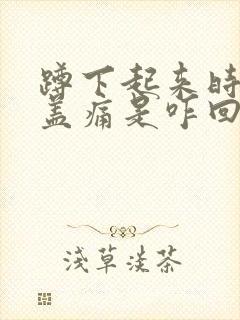 蹲下起来时
盖痛是咋回
浅草淡茶